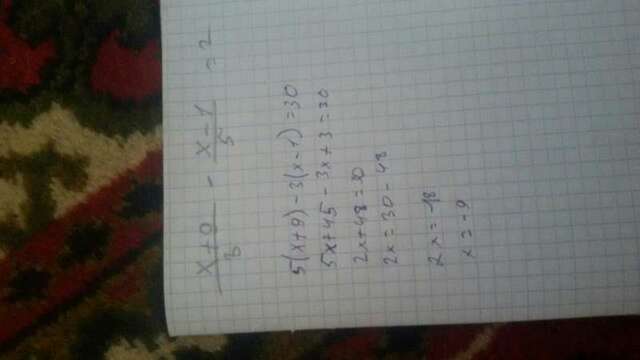 (x+9)/3 - (x-1)/5 = 2
5(x+9)-3(x-1)=30
5x+45-3x+3=30
2x+48=30
2x=30-48
2x=-18
x=-9